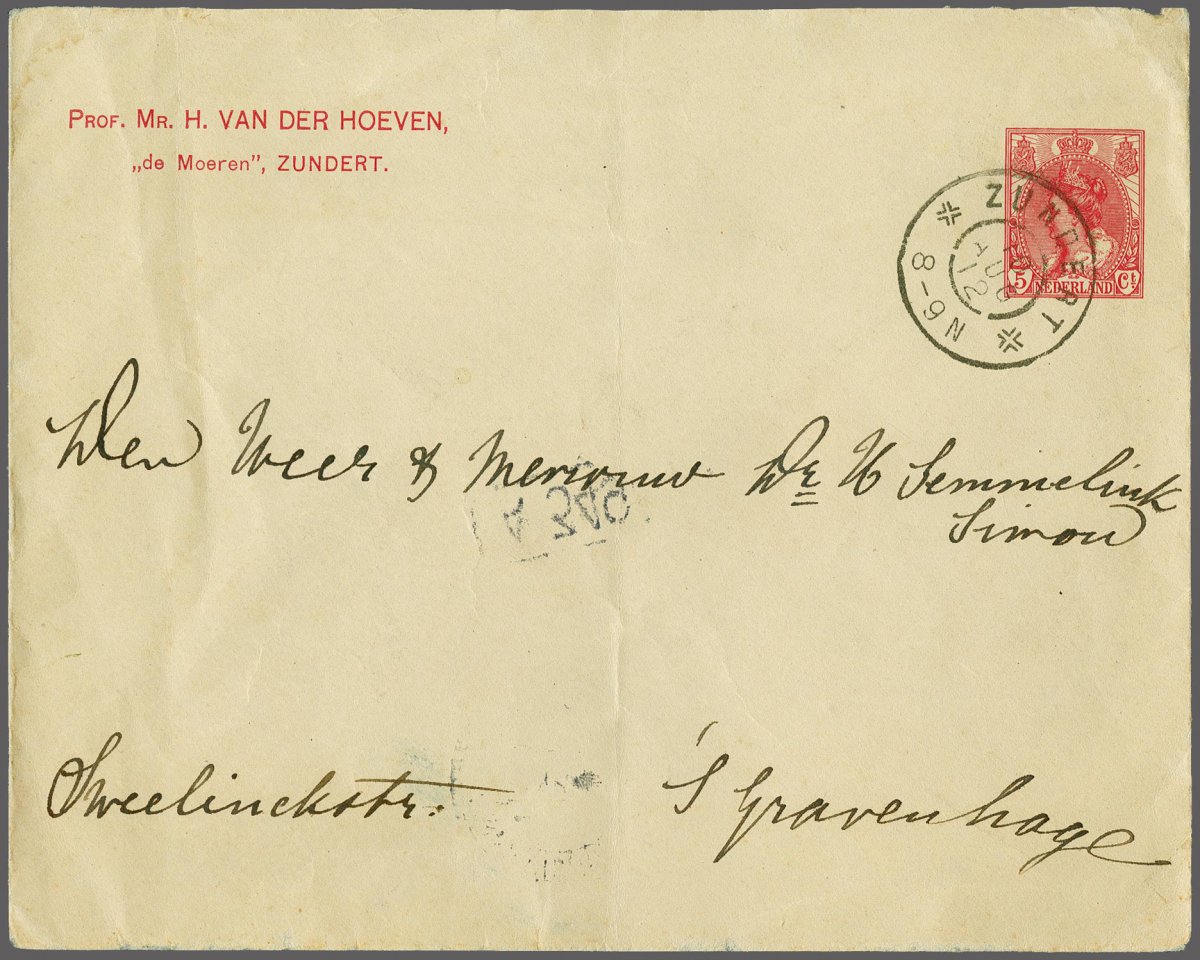 PROF. MR. H. VAN DER HOEVEN,
„de Moeren”, ZUNDERT.
ZUNDERT
AUG
12
8-9N
5 Ct.
NEDERLAND
Den Weer & Mevrouw Dr H Semmelink
Simon
Sweelinckstr.
'S Gravenhage